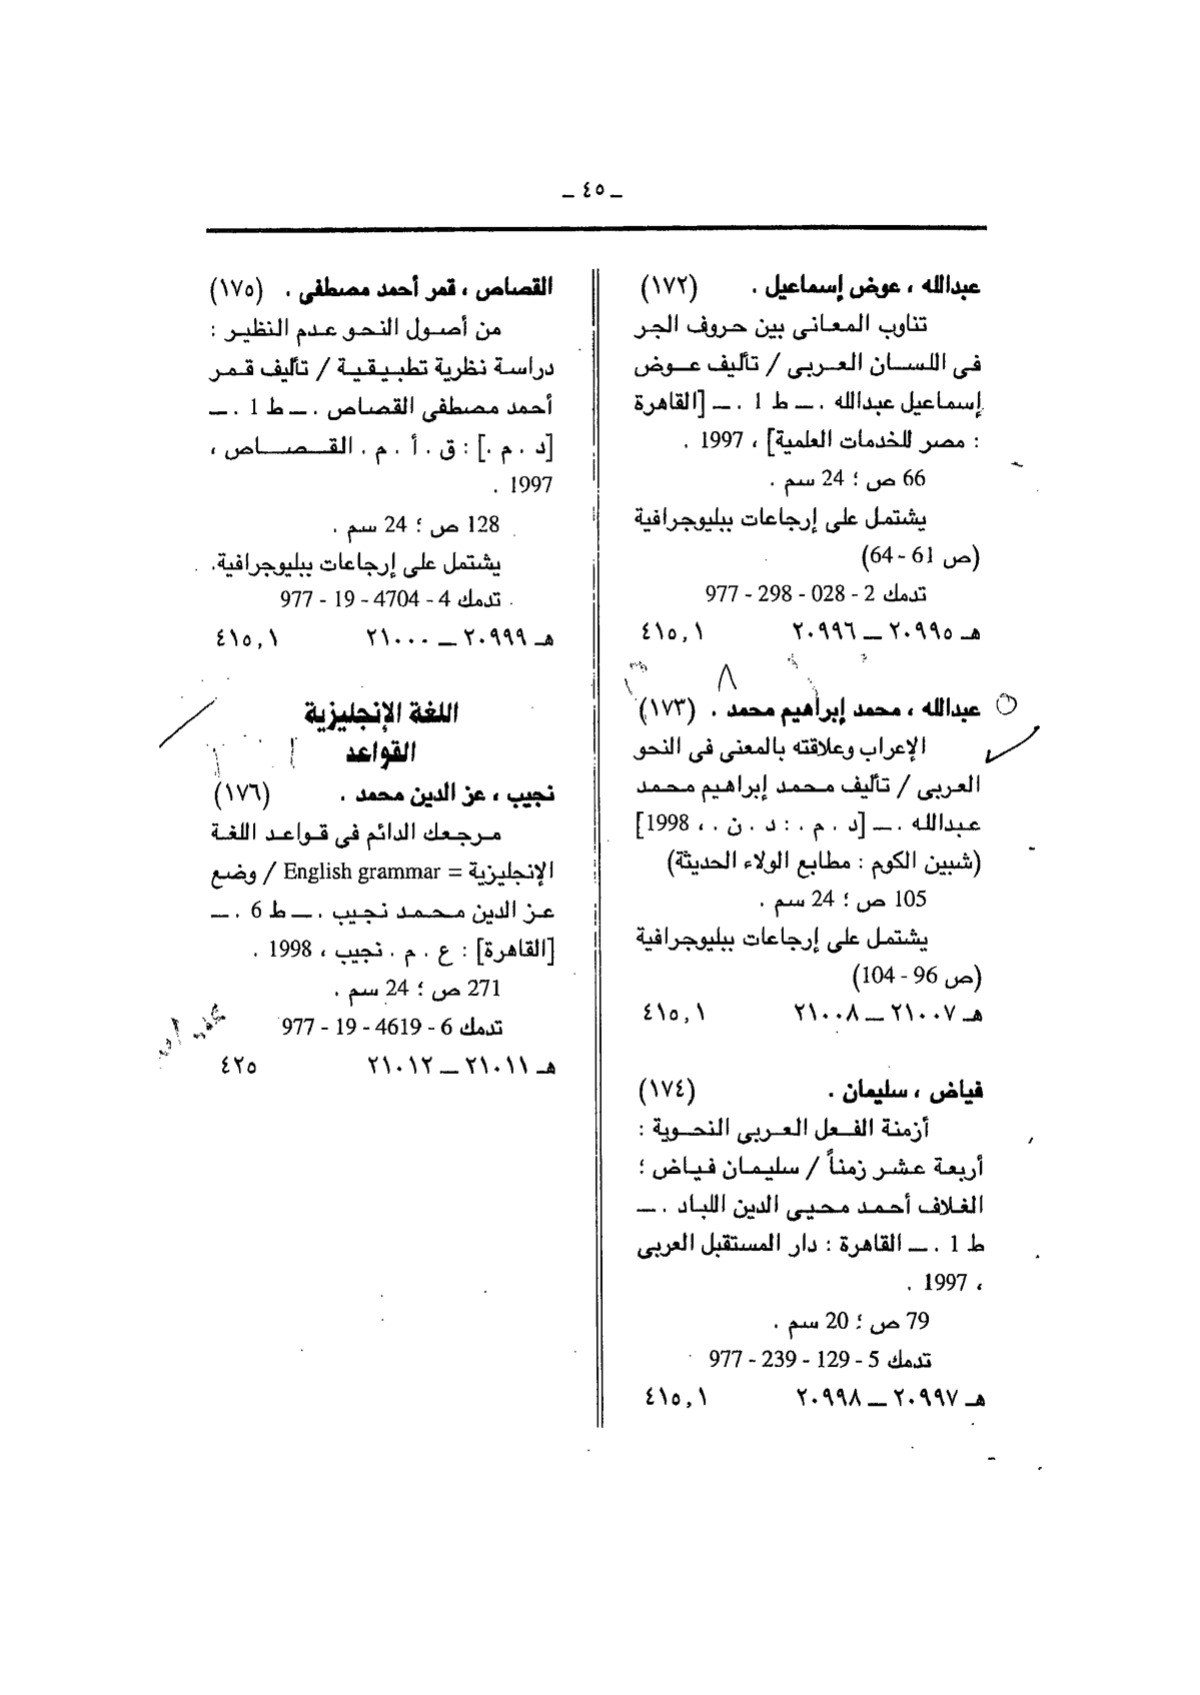 ـ ٤٥ ـ
عبدالله ، عوض إسماعيل . (١٧٢)
تناوب المعانى بين حروف الجر
فى اللسان العربى / تأليف عوض
إسماعيل عبدالله . ــ ط 1 . ــ [القاهرة
: مصر للخدمات العلمية] ، 1997 .
66 ص ؛ 24 سم .
يشتمل على إرجاعات ببليوجرافية
(ص 61 - 64)
تدمك 2 - 028 - 298 - 977
هـ ٢٠٩٩٥ ــ ٢٠٩٩٦ ٤١٥,١
عبدالله ، محمد إبراهيم محمد . (١٧٣)
الإعراب وعلاقته بالمعنى فى النحو
العربى / تأليف محمد إبراهيم محمد
عبدالله . ــ [د . م . : د . ن . ، 1998]
(شبين الكوم : مطابع الولاء الحديثة)
105 ص ؛ 24 سم .
يشتمل على إرجاعات ببليوجرافية
(ص 96 - 104)
هـ ٢١٠٠٧ ــ ٢١٠٠٨ ٤١٥,١
فياض ، سليمان . (١٧٤)
أزمنة الفعل العربى النحوية :
أربعة عشر زمناً / سليمان فياض ؛
الغلاف أحمد محيى الدين اللباد . ــ
ط 1 . ــ القاهرة : دار المستقبل العربى
، 1997 .
79 ص ؛ 20 سم .
تدمك 5 - 129 - 239 - 977
هـ ٢٠٩٩٧ ــ ٢٠٩٩٨ ٤١٥,١
القصاص ، قمر أحمد مصطفى . (١٧٥)
من أصول النحو عدم النظير :
دراسة نظرية تطبيقية / تأليف قمر
أحمد مصطفى القصاص . ــ ط 1 . ــ
[د . م .] : ق . أ . م . القصاص ،
1997 .
128 ص ؛ 24 سم .
يشتمل على إرجاعات ببليوجرافية.
تدمك 4 - 4704 - 19 - 977
هـ ٢٠٩٩٩ ــ ٢١٠٠٠ ٤١٥,١
اللغة الإنجليزية
القواعد
نجيب ، عز الدين محمد . (١٧٦)
مرجعك الدائم فى قواعد اللغة
الإنجليزية = English grammar / وضع
عز الدين محمد نجيب . ــ ط 6 . ــ
[القاهرة] : ع . م . نجيب ، 1998 .
271 ص ؛ 24 سم .
تدمك 6 - 4619 - 19 - 977
هـ ٢١٠١١ ــ ٢١٠١٢ ٤٢٥